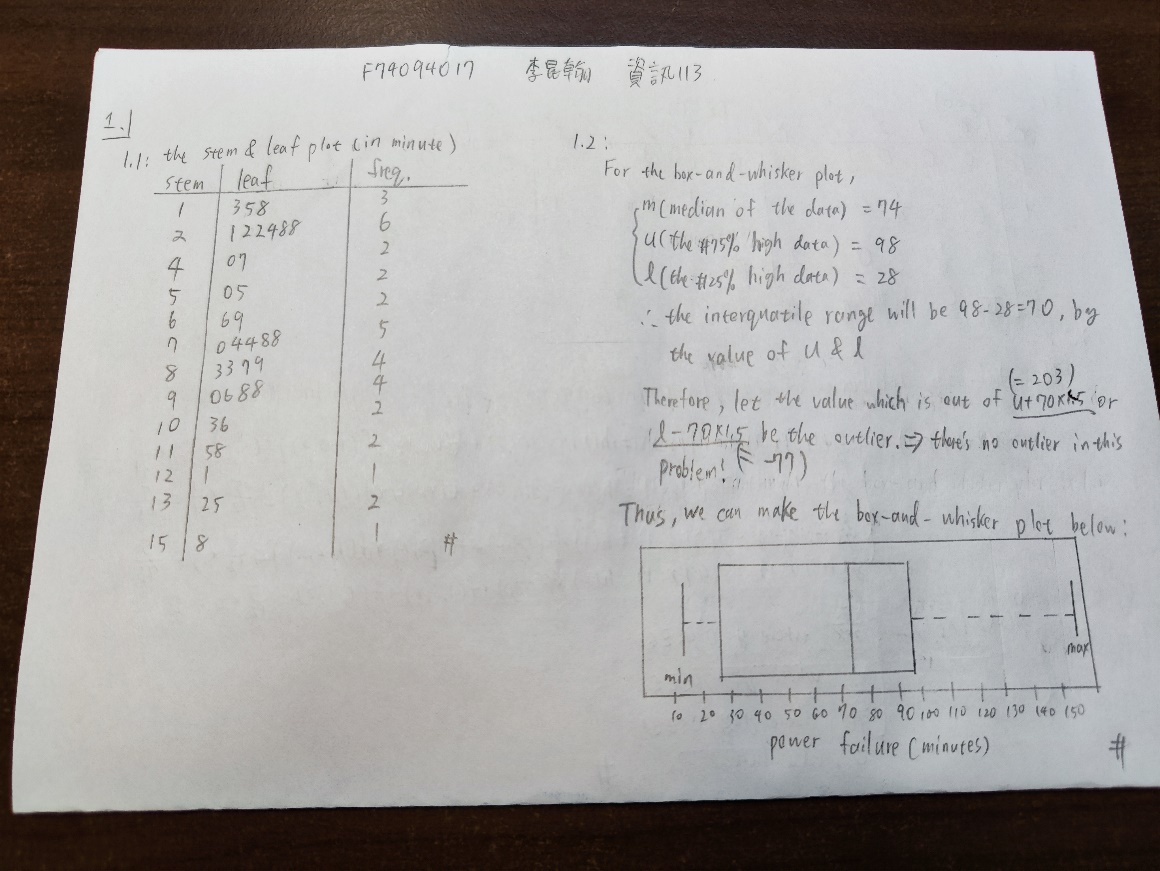 F74094017 李昆翰 資訊113
1.
1.1: the stem & leaf plot (in minute)
stem leaf freq.
1 358 3
2 122488 6
4 07 2
5 05 2
6 69 2
7 04488 5
8 3379 4
9 0688 4
10 36 2
11 58 2
12 1 1
13 25 2
15 8 1 #
1.2:
For the box-and-whisker plot,
m(median of the data) = 74
u(the #75% high data) = 98
l(the #25% high data) = 28
∴ the interquatile range will be 98-28=70, by
the value of u & l
(= 203)
Therefore, let the value which is out of u+70×1.5 or
l-70×1.5 be the outlier. ⇒ there's no outlier in this
problem! (= -77)
Thus, we can make the box-and-whisker plot below:
min max
10 20 30 40 50 60 70 80 90 100 110 120 130 140 150
power failure (minutes) #